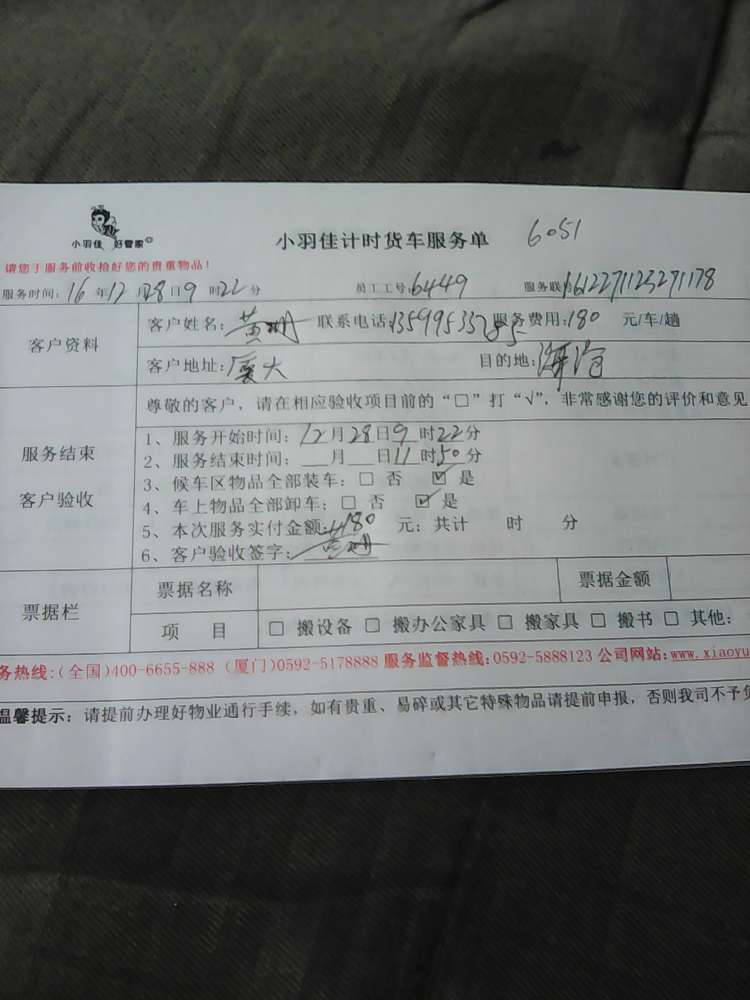 小羽佳 好管家
小羽佳计时货车服务单 6051
请您于服务前收拾好您的贵重物品！
服务时间：16年12月28日9时22分 员工工号：6449 服务联 1612271123271178
客户资料
客户姓名：黄 联系电话：135995 服务费用：180 元/车/趟
客户地址：厦大 目的地：海沧
服务结束
客户验收
尊敬的客户，请在相应验收项目前的“□”打“√”，非常感谢您的评价和意见
1、服务开始时间：12月28日9时22分
2、服务结束时间：__月__日11时50分
3、候车区物品全部装车：□ 否 ☑ 是
4、车上物品全部卸车：□ 否 ☑ 是
5、本次服务实付金额：180 元；共计 时 分
6、客户验收签字：黄
票据栏
票据名称 票据金额
项 目 □ 搬设备 □ 搬办公家具 □ 搬家具 □ 搬书 □ 其他：
务热线：(全国)400-6655-888 (厦门)0592-5178888 服务监督热线：0592-5888123 公司网站：www.xiaoyu
温馨提示：请提前办理好物业通行手续，如有贵重、易碎或其它特殊物品请提前申报，否则我司不予负